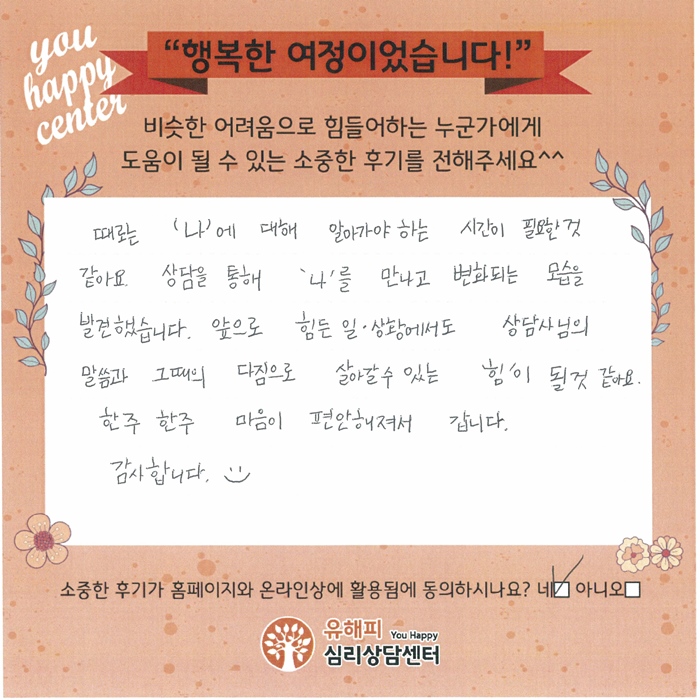 you
happy
center
“행복한 여정이었습니다!”
비슷한 어려움으로 힘들어하는 누군가에게
도움이 될 수 있는 소중한 후기를 전해주세요^^
때로는 '나'에 대해 알아가야 하는 시간이 필요한것
같아요. 상담을 통해 '나'를 만나고 변화되는 모습을
발견했습니다. 앞으로 힘든 일·상황에서도 상담사님의
말씀과 그때의 다짐으로 살아갈수 있는 힘이 될것 같아요.
한주 한주 마음이 편안해져서 갑니다.
감사합니다.
소중한 후기가 홈페이지와 온라인상에 활용됨에 동의하시나요? 네 아니오
유해피 You Happy
심리상담센터